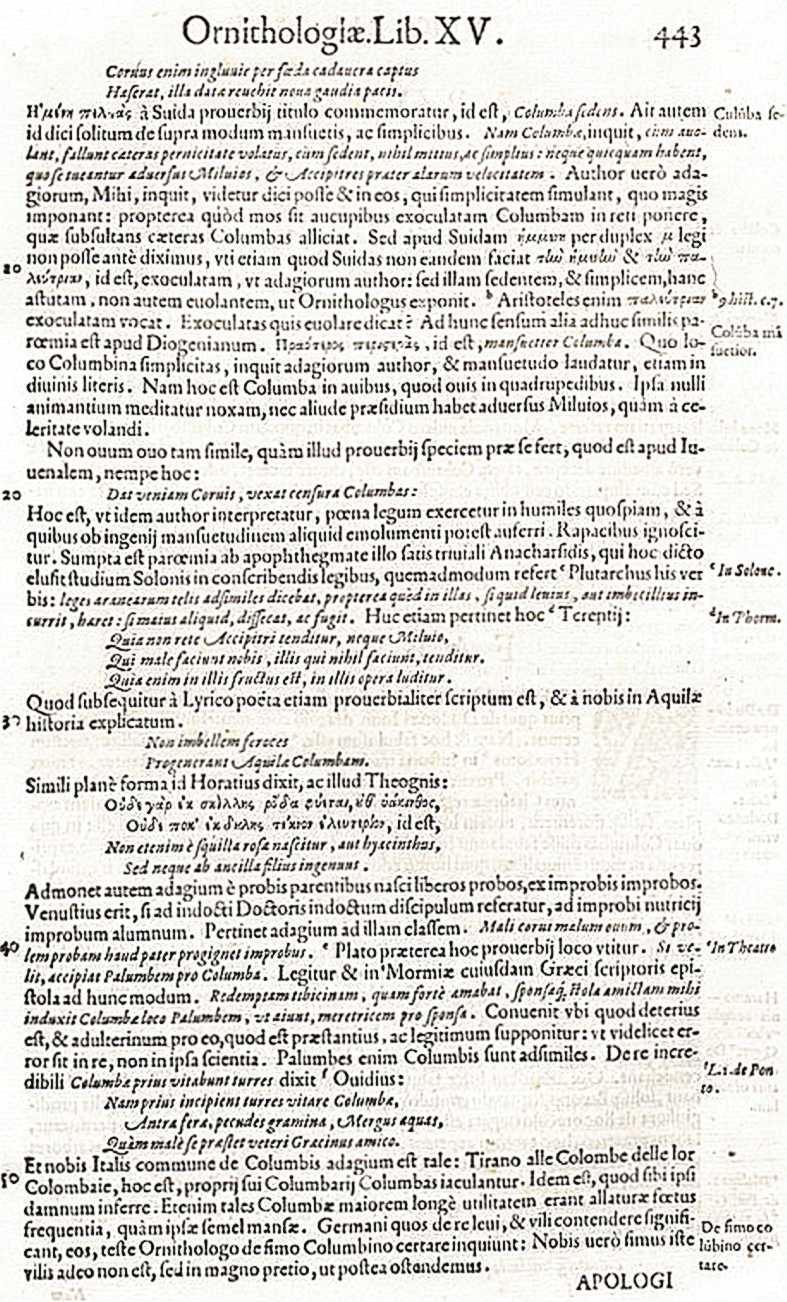 Ornithologiæ. Lib. XV. 443
Coruus enim ingluuie per fœda cadauera captus
Hæserat, illa datæ reuehit noua gaudia pacis.
à Suida prouerbij titulo commemoratur, id est, Columba sedens. Ait autem
Colũba se-
dens.
id dici solitum de supra modum mansuetis, ac simplicibus. Nam Columbæ, inquit, cùm auo-
lant, fallunt cæteras pernicitate volatus, cùm sedent, nihil mitius, ac simplius: neque quicquam habent,
quo se tueantur aduersus Miluios, & Accipitres præter alarum velocitatem. Author uerò ada-
giorum, Mihi, inquit, videtur dici posse & in eos, qui simplicitatem simulant, quo magis
imponant: propterea quòd mos sit aucupibus exoculatam Columbam in reti ponere,
quæ subsultans cæteras Columbas alliciat. Sed apud Suidam per duplex μ legi
non posse antè diximus, vti etiam quod Suidas non eandem faciat
10
, id est, exoculatam, vt adagiorum author: sed illam sedentem, & simplicem, hanc
astutam, non autem euolantem, ut Ornithologus exponit. b Aristoteles enim
b 9 hist. c. 7.
exoculatam vocat. Exoculatas quis euolare dicat? Ad hunc sensum alia adhuc similis pa-
Colũba mã
suetior.
rœmia est apud Diogenianum. , id est, mansuetior Columba. Quo lo-
co Columbina simplicitas, inquit adagiorum author, & mansuetudo laudatur, etiam in
diuinis literis. Nam hoc est Columba in auibus, quod ouis in quadrupedibus. Ipsa nulli
animantium meditatur noxam, nec aliud è præsidium habet aduersus Miluios, quàm à ce-
leritate volandi.
Non ouum ouo tam simile, quàm illud prouerbij speciem præ se fert, quod est apud Iu-
uenalem, nempe hoc:
20
Dat veniam Coruis, vexat censura Columbas:
Hoc est, vt idem author interpretatur, pœna legum exercetur in humiles quospiam, & à
quibus ob ingenij mansuetudinem aliquid emolumenti potest auferri. Rapacibus ignosci-
tur. Sumpta est parœmia ab apophthegmate illo satis triuiali Anacharsidis, qui hoc dicto
elusit studium Solonis in conscribendis legibus, quemadmodum refert c Plutarchus his ver
c In Solone.
bis: leges aranearum telis adsimiles dicebat, propterea quòd in illas, si quid leuius, aut imbecillius in-
currit, hæret: si maius aliquid, dissecat, ac fugit. Huc etiam pertinet hoc d Terentij:
d In Phorm.
Quia non rete Accipitri tenditur, neque Miluio,
Qui male faciunt nobis, illis qui nihil faciunt, tenditur.
Quia enim in illis fructus est, in illis opera luditur.
Quod subsequitur à Lyrico poëta etiam prouerbialiter scriptum est, & à nobis in Aquilæ
30
historia explicatum.
Non imbellem feroces
Progenerant Aquilæ Columbam.
Simili planè forma id Horatius dixit, ac illud Theognis:
Οὐδὲ γὰρ ἐκ σκίλλης ῥόδα φύεται, ὐθ' ὑάκινθος,
Οὐδέ ποκ' ἐκ δούλης τέκνον ἐλευθερίου, id est,
Non etenim è squilla rosa nascitur, aut hyacinthus,
Sed neque ab ancilla filius ingenuus.
Admonet autem adagium è probis parentibus nasci liberos probos, ex improbis improbos.
Venustius erit, si ad indocti Doctoris indoctum discipulum referatur, ad improbi nutricij
improbum alumnum. Pertinet adagium ad illam classem. Mali corui malum ouum, & pro-
40
lem probam haud pater progignet improbus. e Plato præterea hoc prouerbij loco vtitur. Si ve-
e In Theæte
lit, accipiat Palumbem pro Columba. Legitur & in Mormiæ cuiusdam Græci scriptoris epi-
stola ad hunc modum. Redemptam tibicinam, quam fortè amabat, sponsaq́; stola amictam mihi
induxit Columbæ loco Palumbem, vt aiunt, meretricem pro sponsa. Conuenit vbi quod deterius
est, & adulterinum pro eo, quod est præstantius, ac legitimum supponitur: vt videlicet er-
ror sit in re, non in ipsa scientia. Palumbes enim Columbis sunt adsimiles. De re incre-
dibili Columbæ prius vitabunt turres dixit f Ouidius:
f L. 1. de Pon
to.
Nam prius incipient turres vitare Columbæ,
Antra feræ, pecudes gramina, Mergus aquas,
Quàm malè se præstet veteri Græcinus amico.
Et nobis Italis commune de Columbis adagium est tale: Tirano alle Colombe delle lor
50
Colombaie, hoc est, proprij sui Columbarij Columbas iaculantur. Idem est, quod sibi ipsi
damnum inferre: Etenim tales Columbæ maiorem longè utilitatem erant allaturæ fœtus
frequentia, quàm ipsæ semel mansæ. Germani quos de re leui, & vili contendere signifi-
De fimo co
lũbino cer-
tare.
cant, eos, teste Ornithologo de fimo Columbino certare inquiunt: Nobis uerò fimus iste
vilis adeo non est, sed in magno pretio, ut postea ostendemus.
APOLOGI